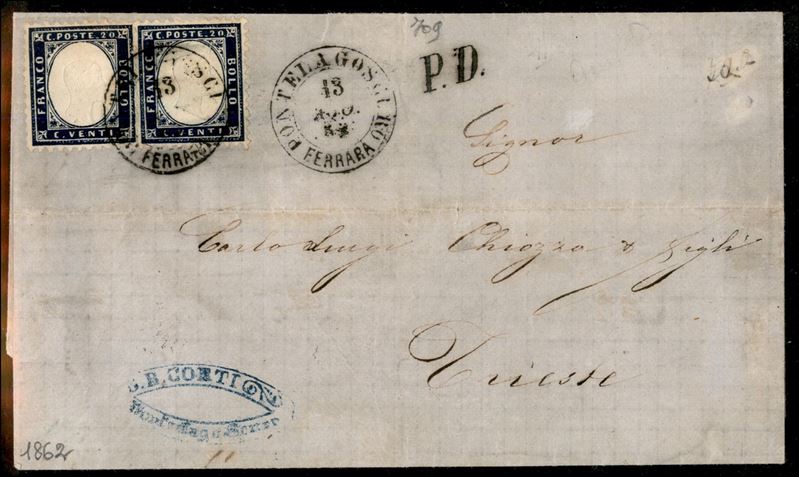 C. POSTE. 20
FRANCO
BOLLO
C. VENTI
C. POSTE. 20
FRANCO
BOLLO
C. VENTI
13
FERRARA
PONTELAGOSCURO
13
AGO.
FERRARA
709
P.D.
Signor
Carlo Luigi Chiozza & figli
Trieste
G.B. CORTI
1862